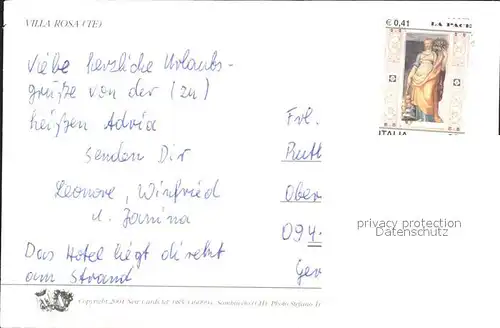 VILLA ROSA (TE)
€ 0,41 LA PACE
ITALIA
Liebe herzliche Urlaubs-
grüße von der (zu)
heißen Adria
senden Dir
Leonore, Winfried
u. Janina
Das Hotel liegt direkt
am Strand
Frl.
Ruth
Ober
094
Ger
privacy protection
Datenschutz
Copyright 2001